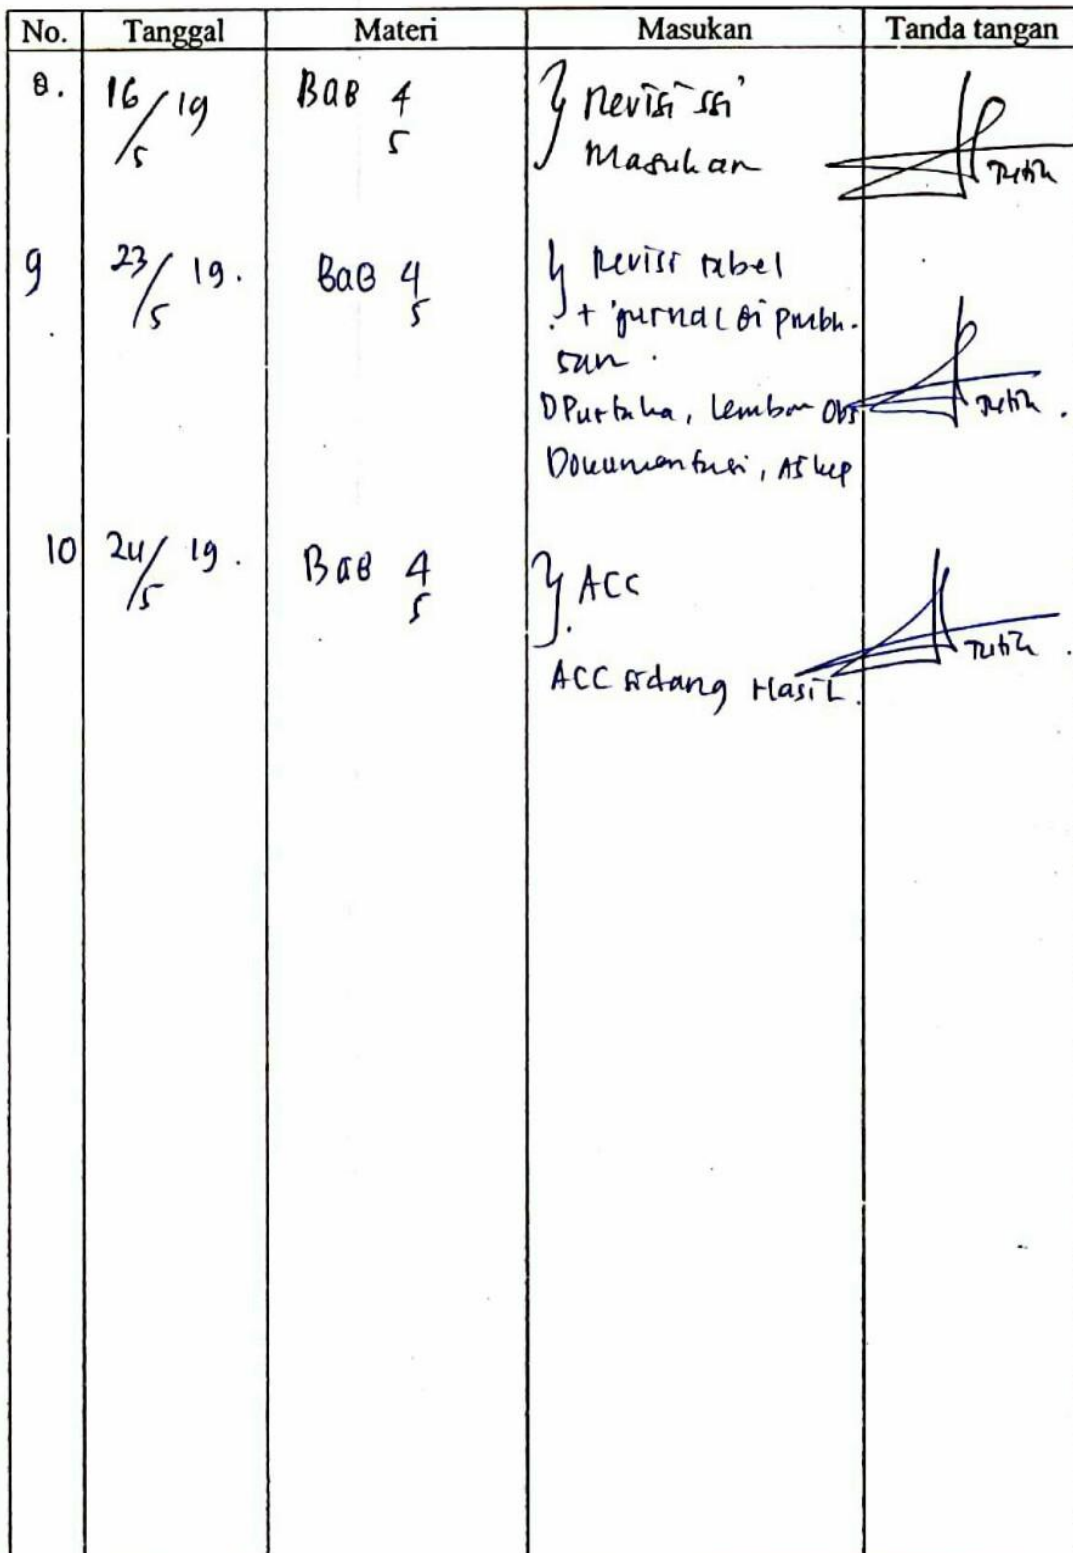 No. Tanggal Materi Masukan Tanda tangan
8. 16/5 19 BAB 4 } Revisi ssi'
5 Masukan
9 23/5 19. BAB 4 } Revisi tabel
5 + jurnal di pmbh.
san.
DPustaka, Lembar Obs
Dokumentasi, Askep
10 24/5 19. BAB 4 } ACC
5
ACC Sidang Hasil.